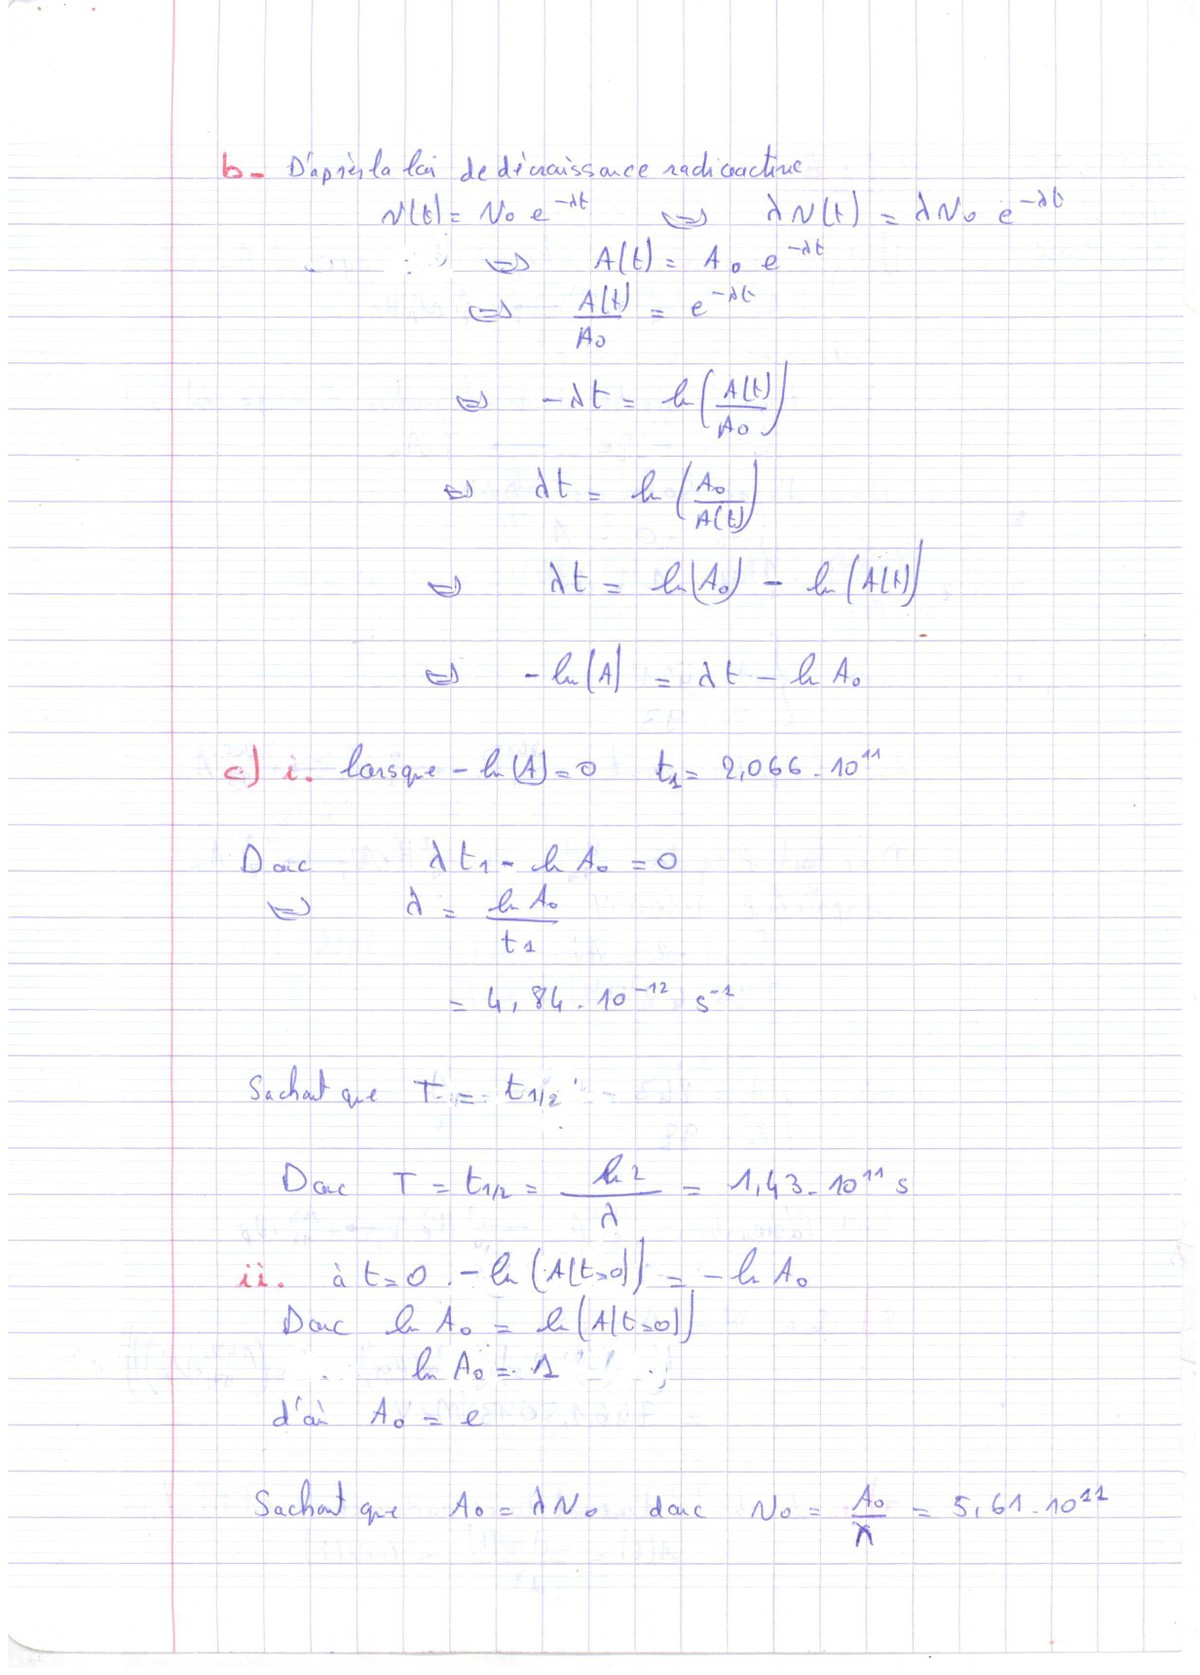 b- D'après la loi de décroissance radioactive
N(t) = N₀ e^{-λt} ⇔ λN(t) = λN₀ e^{-λt}
⇔ A(t) = A₀ e^{-λt}
⇔ A(t)/A₀ = e^{-λt}
⇔ -λt = ln(A(t)/A₀)
⇔ λt = ln(A₀/A(t))
⇔ λt = ln(A₀) - ln(A(t))
⇔ -ln(A) = λt - ln A₀
c) i. lorsque -ln(A)=0 t₁= 2,066.10¹¹
Donc λt₁ - ln A₀ = 0
⇔ λ = ln A₀/t₁
= 4,84.10⁻¹² s⁻¹
Sachant que T = t1/2
Donc T = t1/2 = ln2/λ = 1,43.10¹¹ s
ii. à t=0 -ln(A(t=0)) = -ln A₀
Donc ln A₀ = ln(A(t=0))
ln A₀ = 1
d'où A₀ = e
Sachant que A₀ = λN₀ donc N₀ = A₀/λ = 5,61.10¹¹